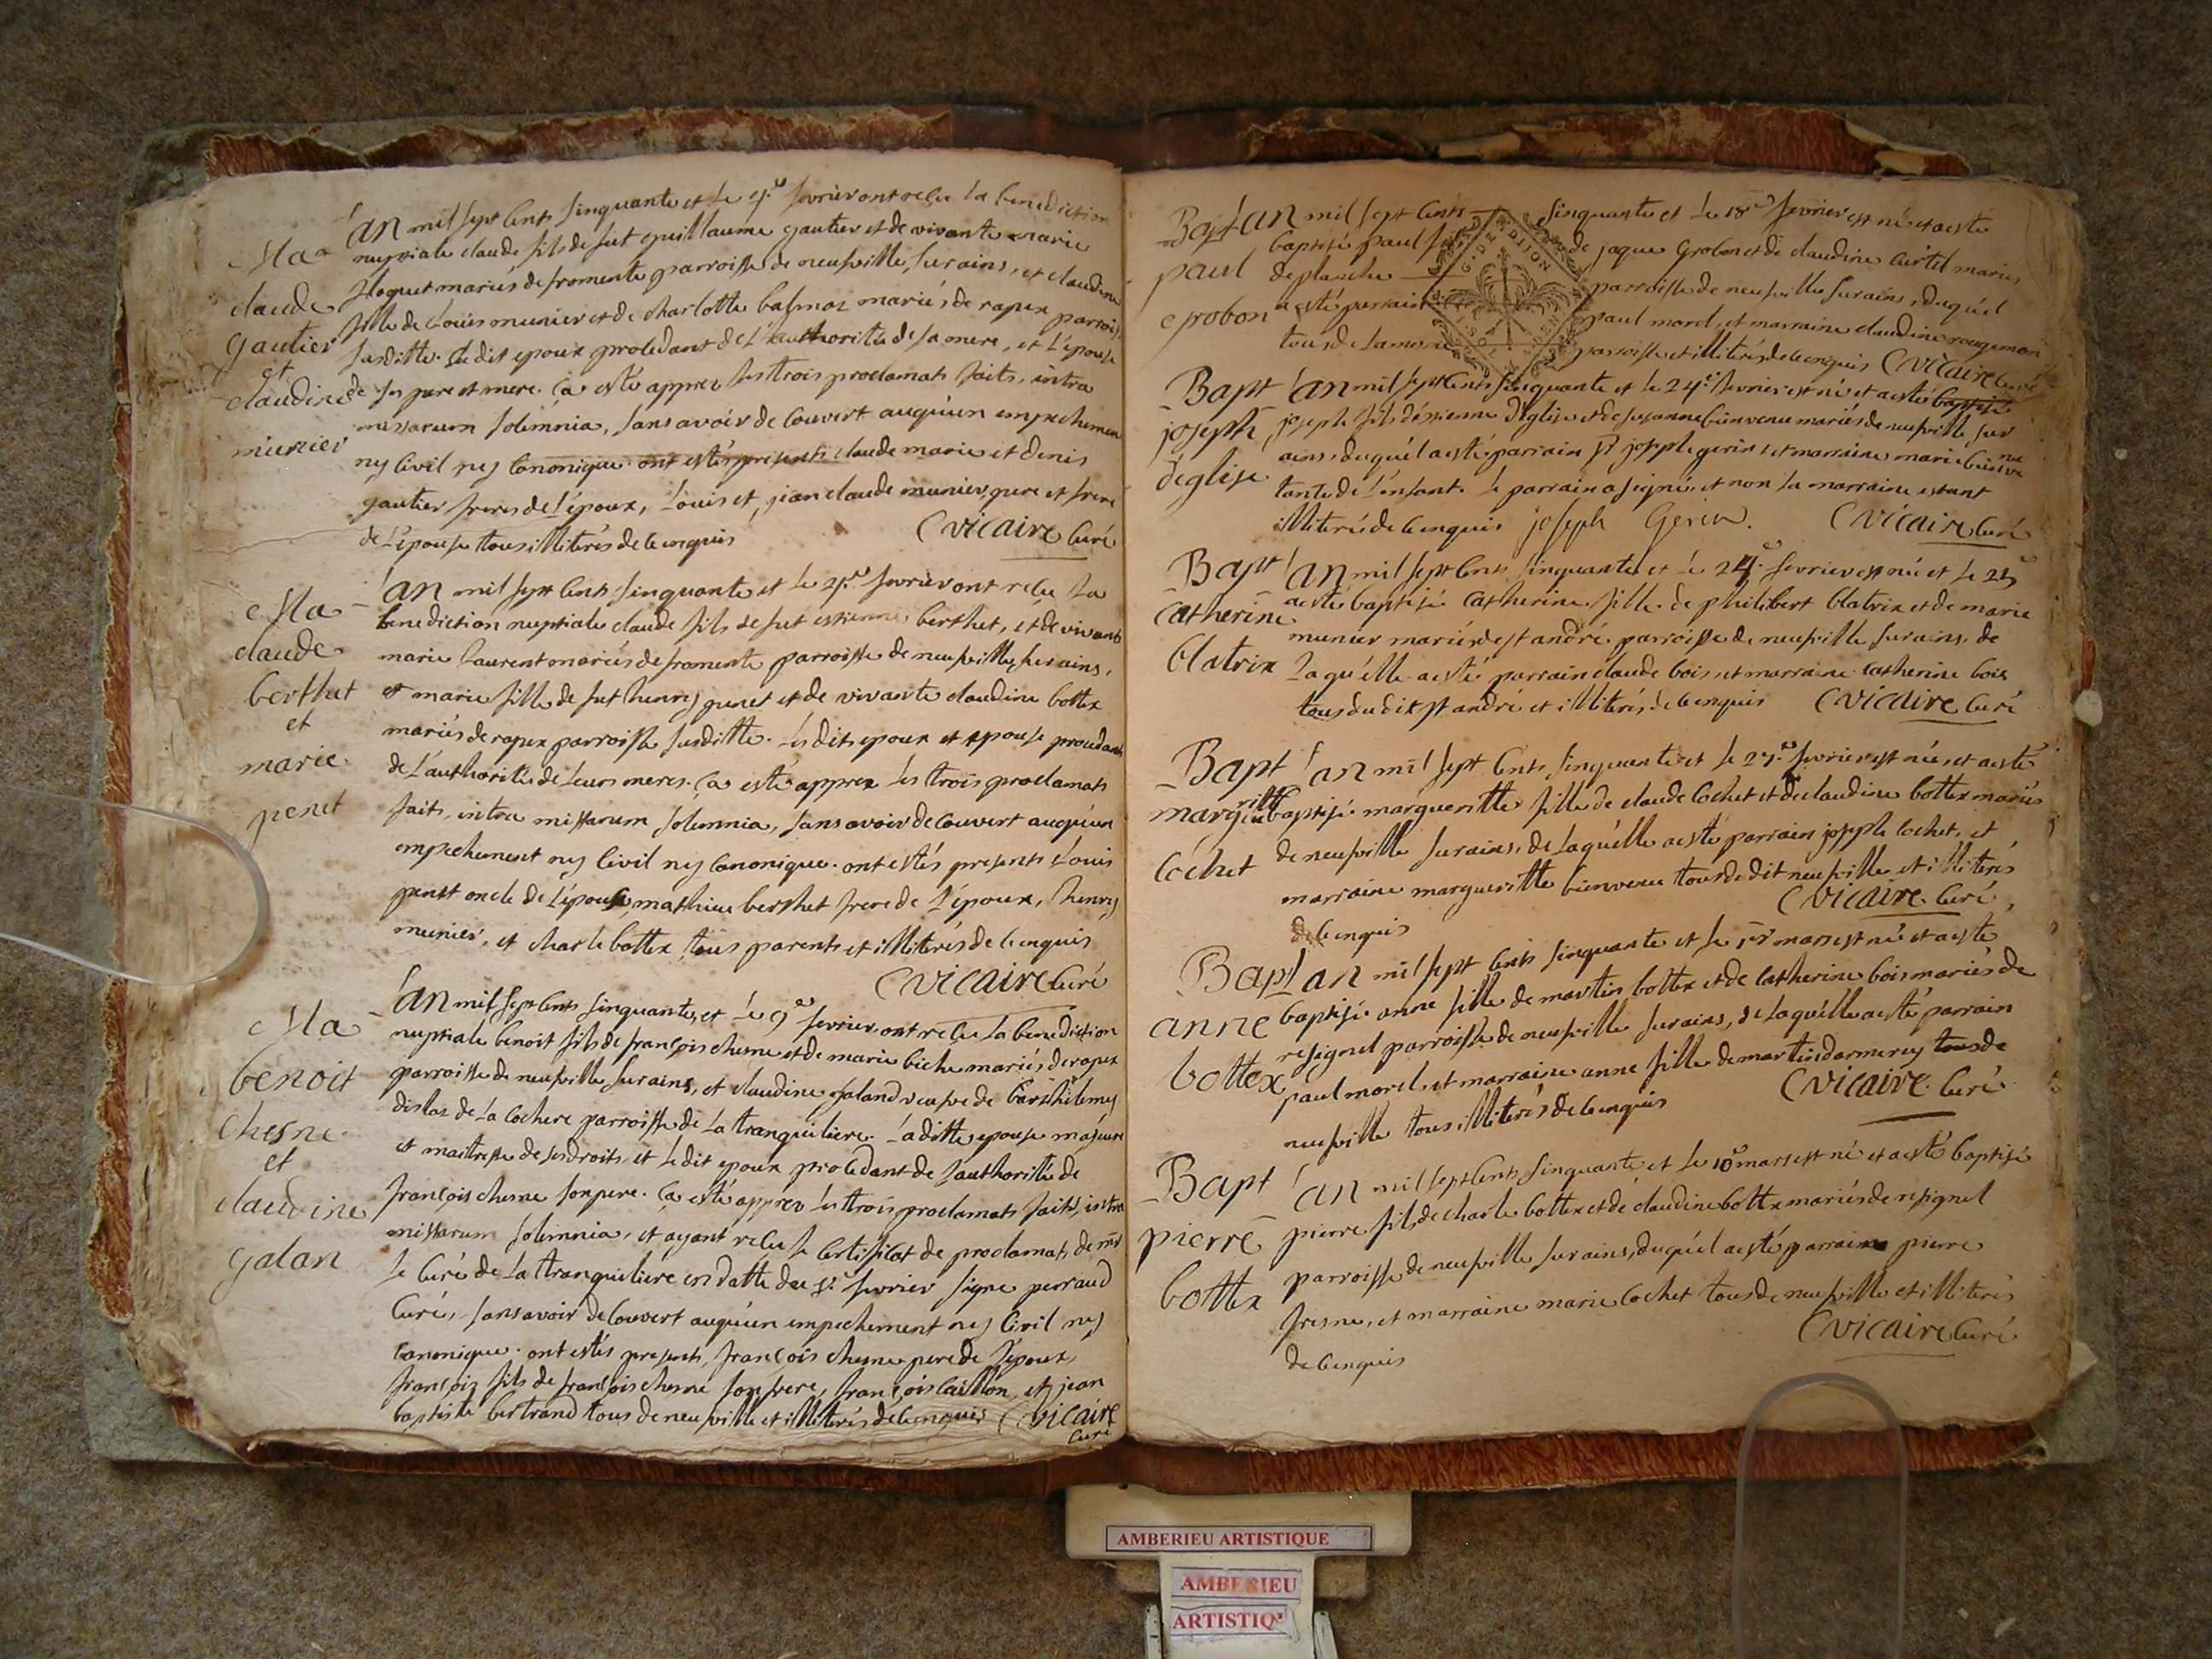 Ma
claude
gautier
et
claudine
munier
L'an mil sept cents sinquante et le fevrier ont reçu la benediction
nuptiale claude fils de fut guillaume gautier et de vivante marie
mariés de fromente parroisse de neufville surains, et claudine
fille de Louis munier et de charlotte mariés de rapex parroisse
susditte. Ledit epoux procedant de l'authorité de sa mere, et l'epouse
de ses pere et mere. Ça esté apprez les trois proclamats faits, intra
missarum solemnia, sans avoir decouvert auqu'un empechement
ny civil ny canonique. ont estés presents claude marie et denis
gautier freres de l'époux, Louis et jean claude munier, pere et frere
de l'épouse tous illiterés de ce enquis
Vicaire curé
Ma
claude
berthet
et
marie
penet
L'an mil sept cents sinquante et le fevrier ont reçu la
benediction nuptiale claude fils de fut estienne berthet, et de vivante
marie Laurent mariés de fromente parroisse de neufville surains,
et marie fille de fut henry penet et de vivante claudine bottex
mariés de rapex parroisse susditte. Lesdits epoux et epouse procedants
de l'authorité de leurs meres. Ça esté apprez les trois proclamats
faits, intra missarum solemnia, sans avoir decouvert auqu'un
empechement ny civil ny canonique. ont estés presents Louis
penet oncle de l'épouse, mathieu berthet frere de l'époux, henry
munier, et charle bottex, tous parents et illiterés de ce enquis
Vicaire curé
Ma
benoit
chesne
et
claudine
galan
L'an mil sept cents sinquante, et le 9e fevrier ont reçu la benediction
nuptiale benoit fils de françois chesne et de marie biche mariés de rapex
parroisse de neufville surains, et claudine galand veufve de barthelemy
de La cochere parroisse de La tranquiliere. Laditte epouse majeure
et maitresse de ses droits, et ledit epoux procedant de l'authorité de
françois chesne son pere. Ça esté apprez les trois proclamats faits, intra
missarum solemnia, et ayant reçu le certificat de proclamats de mr
le curé de La tranquiliere en datte du fevrier signe perraud
curé, sans avoir decouvert auqu'un empechement ny civil ny
canonique. ont estés presents, françois chesne pere de l'époux,
françois fils de françois chesne son frere, françois caillon, et jean
baptiste bertrand tous de neufville et illiterés de ce enquis Vicaire
curé
G. DE DIJON
Bapt
paul
grobon
L'an mil sept cents sinquante et le 18e fevrier est né et a esté
baptisé paul fils de jaque grobon et de claudine curtil mariés
de planche parroisse de neufville surains, duquel
a esté parrain paul morel, et marraine claudine rougemon
tous de la mesme parroisse et illiterés de ce enquis Vicaire curé
Bapt
joseph
deglise
L'an mil sept cents sinquante et le 24e fevrier est né et a esté baptisé
joseph fils d'estienne deglise et de suzanne bienvenu mariés de neufville sur
ains, duquel a esté parrain joseph gerin et marraine marie bienvenue
tante de l'enfant. Le parrain a signé, et non la marraine estant
illiterée de ce enquis joseph Gerin. Vicaire curé
Bapt
catherine
blatrix
L'an mil sept cents sinquante et le 24e fevrier est née et le 25e
a esté baptisée catherine fille de philibert blatrix et de marie
munier mariés de st andré parroisse de neufville surains, de
laqu'elle a esté parrain claude bois et marraine catherine bois
tous dudit st andré et illiterés de ce enquis Vicaire curé
Bapt
margueritte
cochet
L'an mil sept cents sinquante et le 27e fevrier est née et a esté
baptisée margueritte fille de claude cochet et de claudine bottex mariés
de neufville surains, de laqu'elle a esté parrain joseph cochet, et
marraine margueritte bienvenu tous dudit neufville et illiterés
de ce enquis
Vicaire curé
Bapt
anne
bottex
L'an mil sept cents sinquante et le 1er mars est né et a esté
baptisée anne fille de martin bottex et de catherine bois mariés de
resignel parroisse de neufville surains, de laqu'elle a esté parrain
paul morel, et marraine anne fille de martin darmerey tous de
neufville tous illiterés de ce enquis
Vicaire curé
Bapt
pierre
bottex
L'an mil sept cents sinquante et le 10e mars est né et a esté baptisé
pierre fils de charle bottex et de claudine bottex mariés de resignel
parroisse de neufville surains, duquel a esté parrain pierre
fresne, et marraine marie cochet tous de neufville et illiterés
de ce enquis
Vicaire curé
AMBERIEU ARTISTIQUE
AMBERIEU
ARTISTIQ